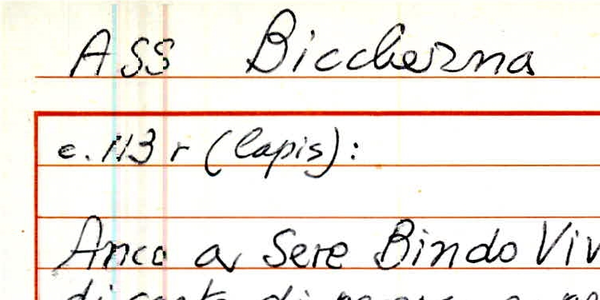 ASS Biccherna
c. 113 r (lapis):
Anco a Sere Bindo Viv
di carta di